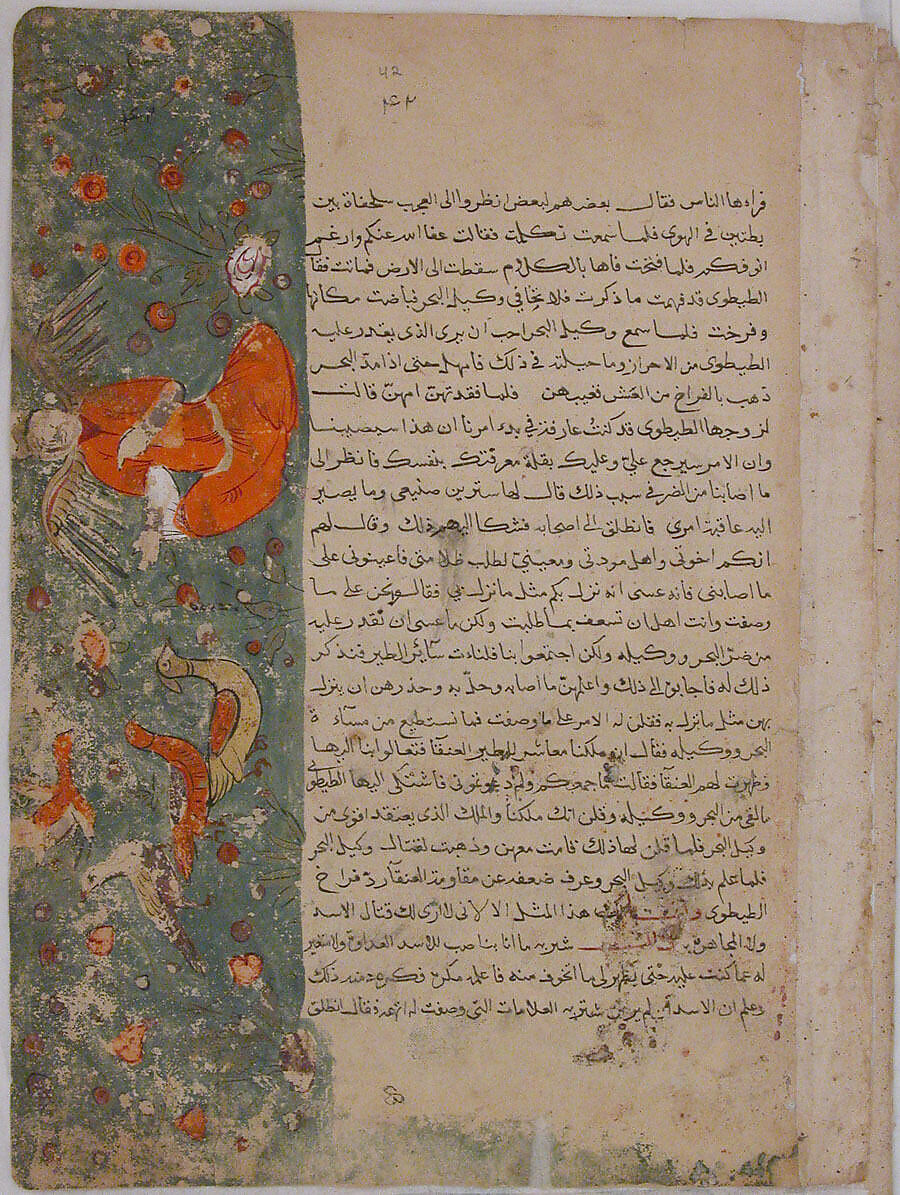 42
فراءها الناس فقال بعضهم لبعض انظروا الى العجب سلحفاة بين
بطتين في الهوى فلما سمعت تكلمت فقالت عفا الله عنكم وارغم
انوفكم فلما فتحت فاها بالكلام سقطت الى الارض فماتت فقا
الطيطوى قد فهمت ما ذكرت فلا تخافي وكيل البحر فباضت مكانها
وفرخت فلما سمع وكيل البحر احب ان يرى الذى يقدر عليه
الطيطوى من الاحراز وما حيلته في ذلك فامهل حتى اذا مد البحر
ذهب بالفراخ من العش فغيبهن فلما فقدتهن امهن قالت
لزوجها الطيطوى قد كنت عارفة في بدء امرنا ان هذا سيصيبنا
وان الامر سيرجع علي وعليك بقلة معرفتك بنفسك فانظر الى
ما اصابنا من الضر في سبب ذلك قال لها سترين صنيعى وما يصير
اليه عاقبة امرى فانطلق الى اصحابه فشكا اليهم ذلك وقال لهم
انكم اخوتي واهل مودتي لطلب ظلامتى فاعينونى على
ما اصابني فانه عسى انه نزل بكم مثل ما نزل بي فقالو نحن على ما
وصفت وانت اهل ان تسعف بما طلبت ولكن ما عسى ان نقدر عليه
من ضر البحر ووكيله ولكن اجتمعوا بنا فلنات سائر الطير فنذكر
ذلك له فاجابوه الى ذلك واعلمهن ما اصابه وحل به وحذرهن ان ينزل
بهن مثل ما نزل به فقلن له الامر على ما وصفت فما نستطيع من مساءة
البحر ووكيله فقال ان ملكنا معاشر الطير العنقا فتعالوا بنا اليها
فظهرت لهم العنقا فقالت ما جمعكم ولم دعوتمونى فاشتكى اليها الطيطوى
ما لقى من البحر ووكيله وقلن انك ملكنا والملك الذى يعتقد اقوى من
وكيل البحر فلما قلن لها ذلك قامت معهن وذهبت لقتال وكيل البحر
فلما علم بذلك وكيل البحر وعرف ضعفه عن مقاومة العنقا رد فراخ
الطيطوى هذا المثل الا لانى لا ارى لك قتال الاسد
ولا المجاهرة شتربه ما انا بناصب للاسد العداوة ولا متغير
له عما كنت عليه حتى يظهر لى ما اتخوف منه فاعلمه دمنة ذلك
وعلم ان الاسد ان لم ير من شتربه العلامات التى وصفت له اتهمه فقال انطلق